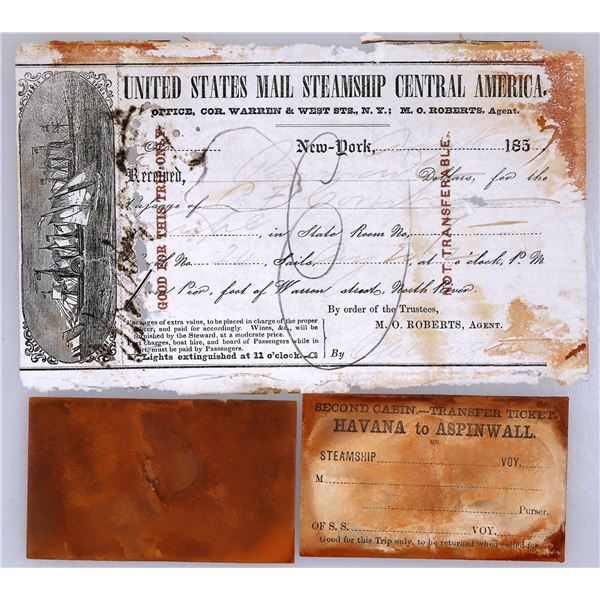 UNITED STATES MAIL STEAMSHIP CENTRAL AMERICA.
OFFICE, COR. WARREN & WEST STS., N. Y.; M. O. ROBERTS, Agent.
No. New-York, 185
Received, Dollars, for the
passage of
in State Room No.
No. Sails, at o'clock, P. M
Pier, foot of Warren street, North River.
GOOD FOR THIS TRIP ONLY
NOT TRANSFERABLE.
ages of extra value, to be placed in charge of the proper
cer, and paid for accordingly. Wines, &c., will be
furnished by the Steward, at a moderate price.
charges, boat hire, and board of Passengers while in
must be paid by Passengers.
Lights extinguished at 11 o'clock.
By order of the Trustees,
M. O. ROBERTS, AGENT.
By
SECOND CABIN.---TRANSFER TICKET.
HAVANA to ASPINWALL.
ON
STEAMSHIP VOY.
M
Purser.
OF S. S. VOY.
Good for this Trip only, to be returned when called for.